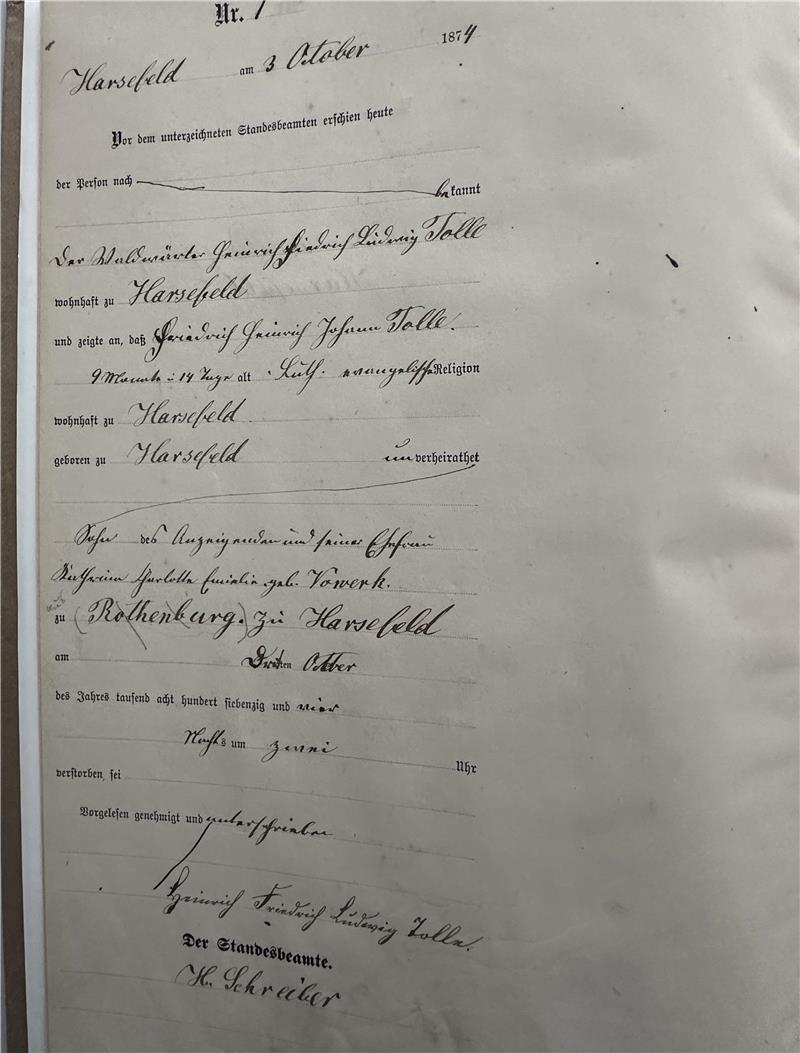 Nr. 1
Harsefeld am 3 October 1874
Vor dem unterzeichneten Standesbeamten erschien heute
der Person nach bekannt
Der Waldwärter Heinrich Friedrich Ludwig Tolle
wohnhaft zu Harsefeld
und zeigte an, daß Friedrich Heinrich Johann Tolle.
9 Monate u 14 Tage alt Luth. evangelische Religion
wohnhaft zu Harsefeld
geboren zu Harsefeld unverheirathet
Sohn des Anzeigenden und seiner Ehefrau
Katherina Charlotte Emielie geb. Vowerk.
zu (Rothenburg.) zu Harsefeld
am Dritten October
des Jahres tausend acht hundert siebenzig und vier
Nachts um zwei Uhr
verstorben sei
Vorgelesen genehmigt und unterschrieben
Heinrich Friedrich Ludwig Tolle.
Der Standesbeamte.
H. Schreiber